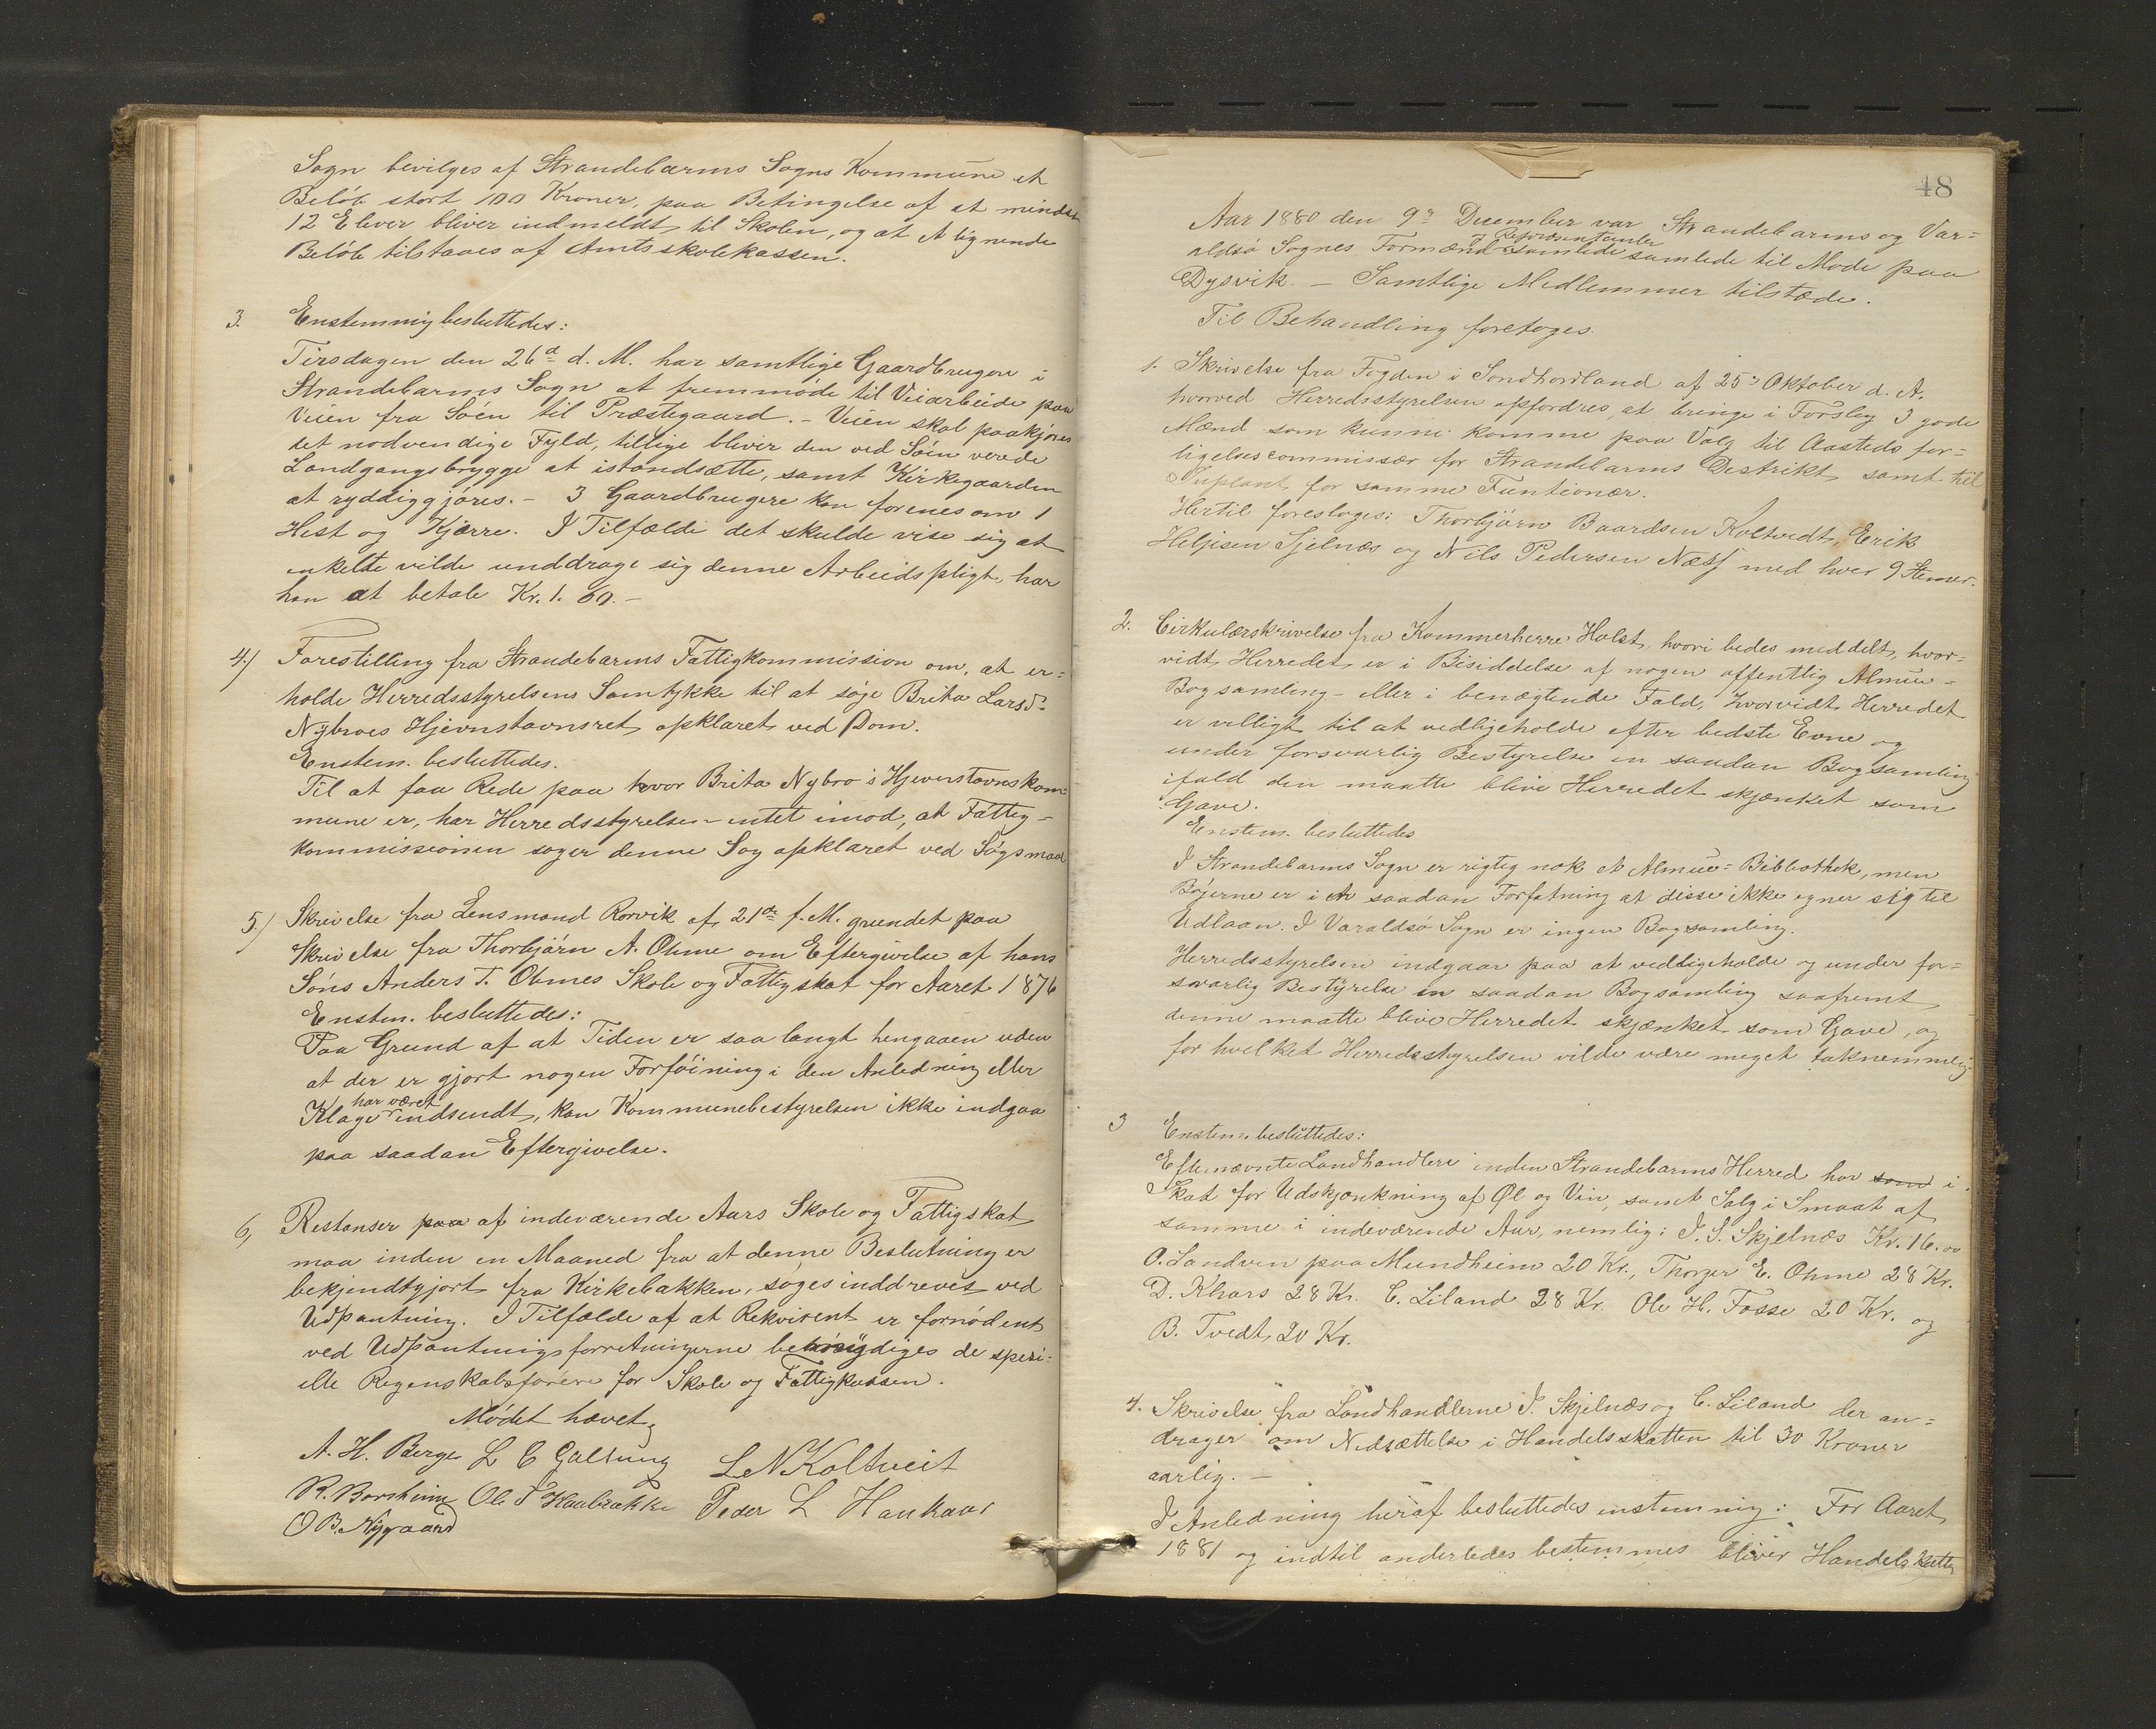 Sogn bevilges af Strandebarms Sogns Kommune et
Beløb stort 100 Kroner, paa Betingelse af at mindst
12 Elever bliver indmeldt til Skolen, og at et lignende
Beløb tilstaaes af Amtsskolekassen.
3. Enstemmig besluttedes:
Tirsdagen den 26d d. M. har samtlige Gaardbrugere i
Strandebarms Sogn at fremmøde til Veiarbeide paa
Veien fra Søen til Præstegaard. - Veien skal paakjøres
det nødvendige Fyld, tillige bliver den ved Søen verede
Landgangsbrygge at istandsætte, samt Kirkegaarden
at ryddiggjøres. - 3 Gaardbrugere kan forenes om 1
Hest og Kjærre. I Tilfælde det skulde vise sig at
enkelte vilde unddrage sig denne Arbeidspligt, har
han at betale Kr. 1. 60. -
4.) Forestilling fra Strandebarms Fattigkommission om, at er=
holde Herredsstyrelsens Samtykke til at søge Brita Larsd.
Nybroes Hjevnstavnsret opklaret ved Dom.
Enstem. besluttedes.
Til at faa Rede paa hvor Brita Nybro's Hjevnstavnskom=
mune er, har Herredsstyrelsen intet imod, at Fattig-
kommissionen søger denne Sag opklaret ved Søgsmaal
5.) Skrivelse fra Lensmand Rørvik af 21de f. M. grundet paa
Skrivelse fra Thorbjørn A. Ohme om Eftergivelse af hans
Søns Anders T. Ohmes Skole og Fattigskat for Aaret 1876
Enstem. besluttedes:
Paa Grund af at Tiden er saa langt hengaaen uden
at der er gjort nogen Forføining i den Anledning eller
Klage har været indsendt, kan Kommunebestyrelsen ikke indgaa
paa saadan Eftergivelse.
6, Restanser paa af indeværende Aars Skole og Fattigskat
maa inden en Maaned fra at denne Beslutning er
bekjendtgjort fra Kirkebakken, søges inddreves ved
Udpantning. I Tilfælde af at Rekvirent er fornødent
ved Udpantningsforretningerne bemyndiges de spesi=
elle Regenskabsførere for Skole og Fattigkassen.
Mødet hævet
A. H. Berge L C Galtung L N Koltveit
R. Borsheim Ole T Haukaar Peder L Haukaar
O B. Nygaard
48
Aar 1880 den 9d December var Strandebarms og Var=
aldsø Sognes Formænd og Repræsentanter samlede samlede til Møde paa
Dysvik. - Samtlige Medlemmer tilstede.
Til Behandling foretoges.
1. Skrivelse fra Fogden i Søndhordland af 25d Oktober d. A.
hvorved Herredsstyrelsen opfordres, at bringe i Forslag 3 gode
Mænd som kunne komme paa Valg til Aastedsfor=
ligelsescommissær for Strandebarms Destrikt, samt til
Supleant for samme Funtionær.
Hertil foresloges: Thorbjørn Baardsen Koltvedt, Erik
Heljesen Sjelnæs og Nils Pedersen Næss med hver 9 Stemer.
2. Cirkulærskrivelse fra Kammerherre Holst, hvori bedes meddelt, hvor=
vidt Herredet er i Bisiddelse af nogen offentlig Almue-
Bogsamling - eller i benægtende Fald, hvorvidt Herredet
er villigt til at vedligeholde efter bedste Evne og
under forsvarlig Bestyrelse en saadan Bogsamling
ifald den maatte blive Herredet skjænket som
Gave.
Enstem. besluttedes
I Strandebarms Sogn er rigtig nok et Almue=Bibliothek, men
Bøgerne er i en saadan Forfatning at disse ikke egner sig til
Udlaan. I Varaldsø Sogn er ingen Bogsamling.
Herredsstyrelsen indgaar paa at vedligeholde og under for=
svarlig Bestyrelse en saadan Bogsamling saafremt
denne maatte blive Herredet skjænket som Gave, og
for hvilket Herredsstyrelsen vilde være meget taknemmelig.
3 Enstem. besluttedes:
Eftenævnte Landhandlere inden Strandebarms Herred har som i
Skat for Udskjænkning af Øl og Vin, samt Salg i Smaat af
samme i indeværende Aar, nemlig: J. S. Skjelnæs Kr. 16.00
O. Sandven paa Mundheim 20 Kr., Thorger E. Ohme 28 Kr.
D. Khars 28 Kr. C. Liland 28 Kr. Ole H. Fosse 20 Kr. og
B. Tvedt 20 Kr.
4. Skrivelse fra Landhandlerne J. Skjelnæs og C. Liland der an=
drager om Nedsættelse i Handelsskatten til 30 Kroner
aarlig. -
I Anledning heraf besluttedes enstemmig: For Aaret
1881 og indtil anderledes bestemmes bliver Handelsskatten